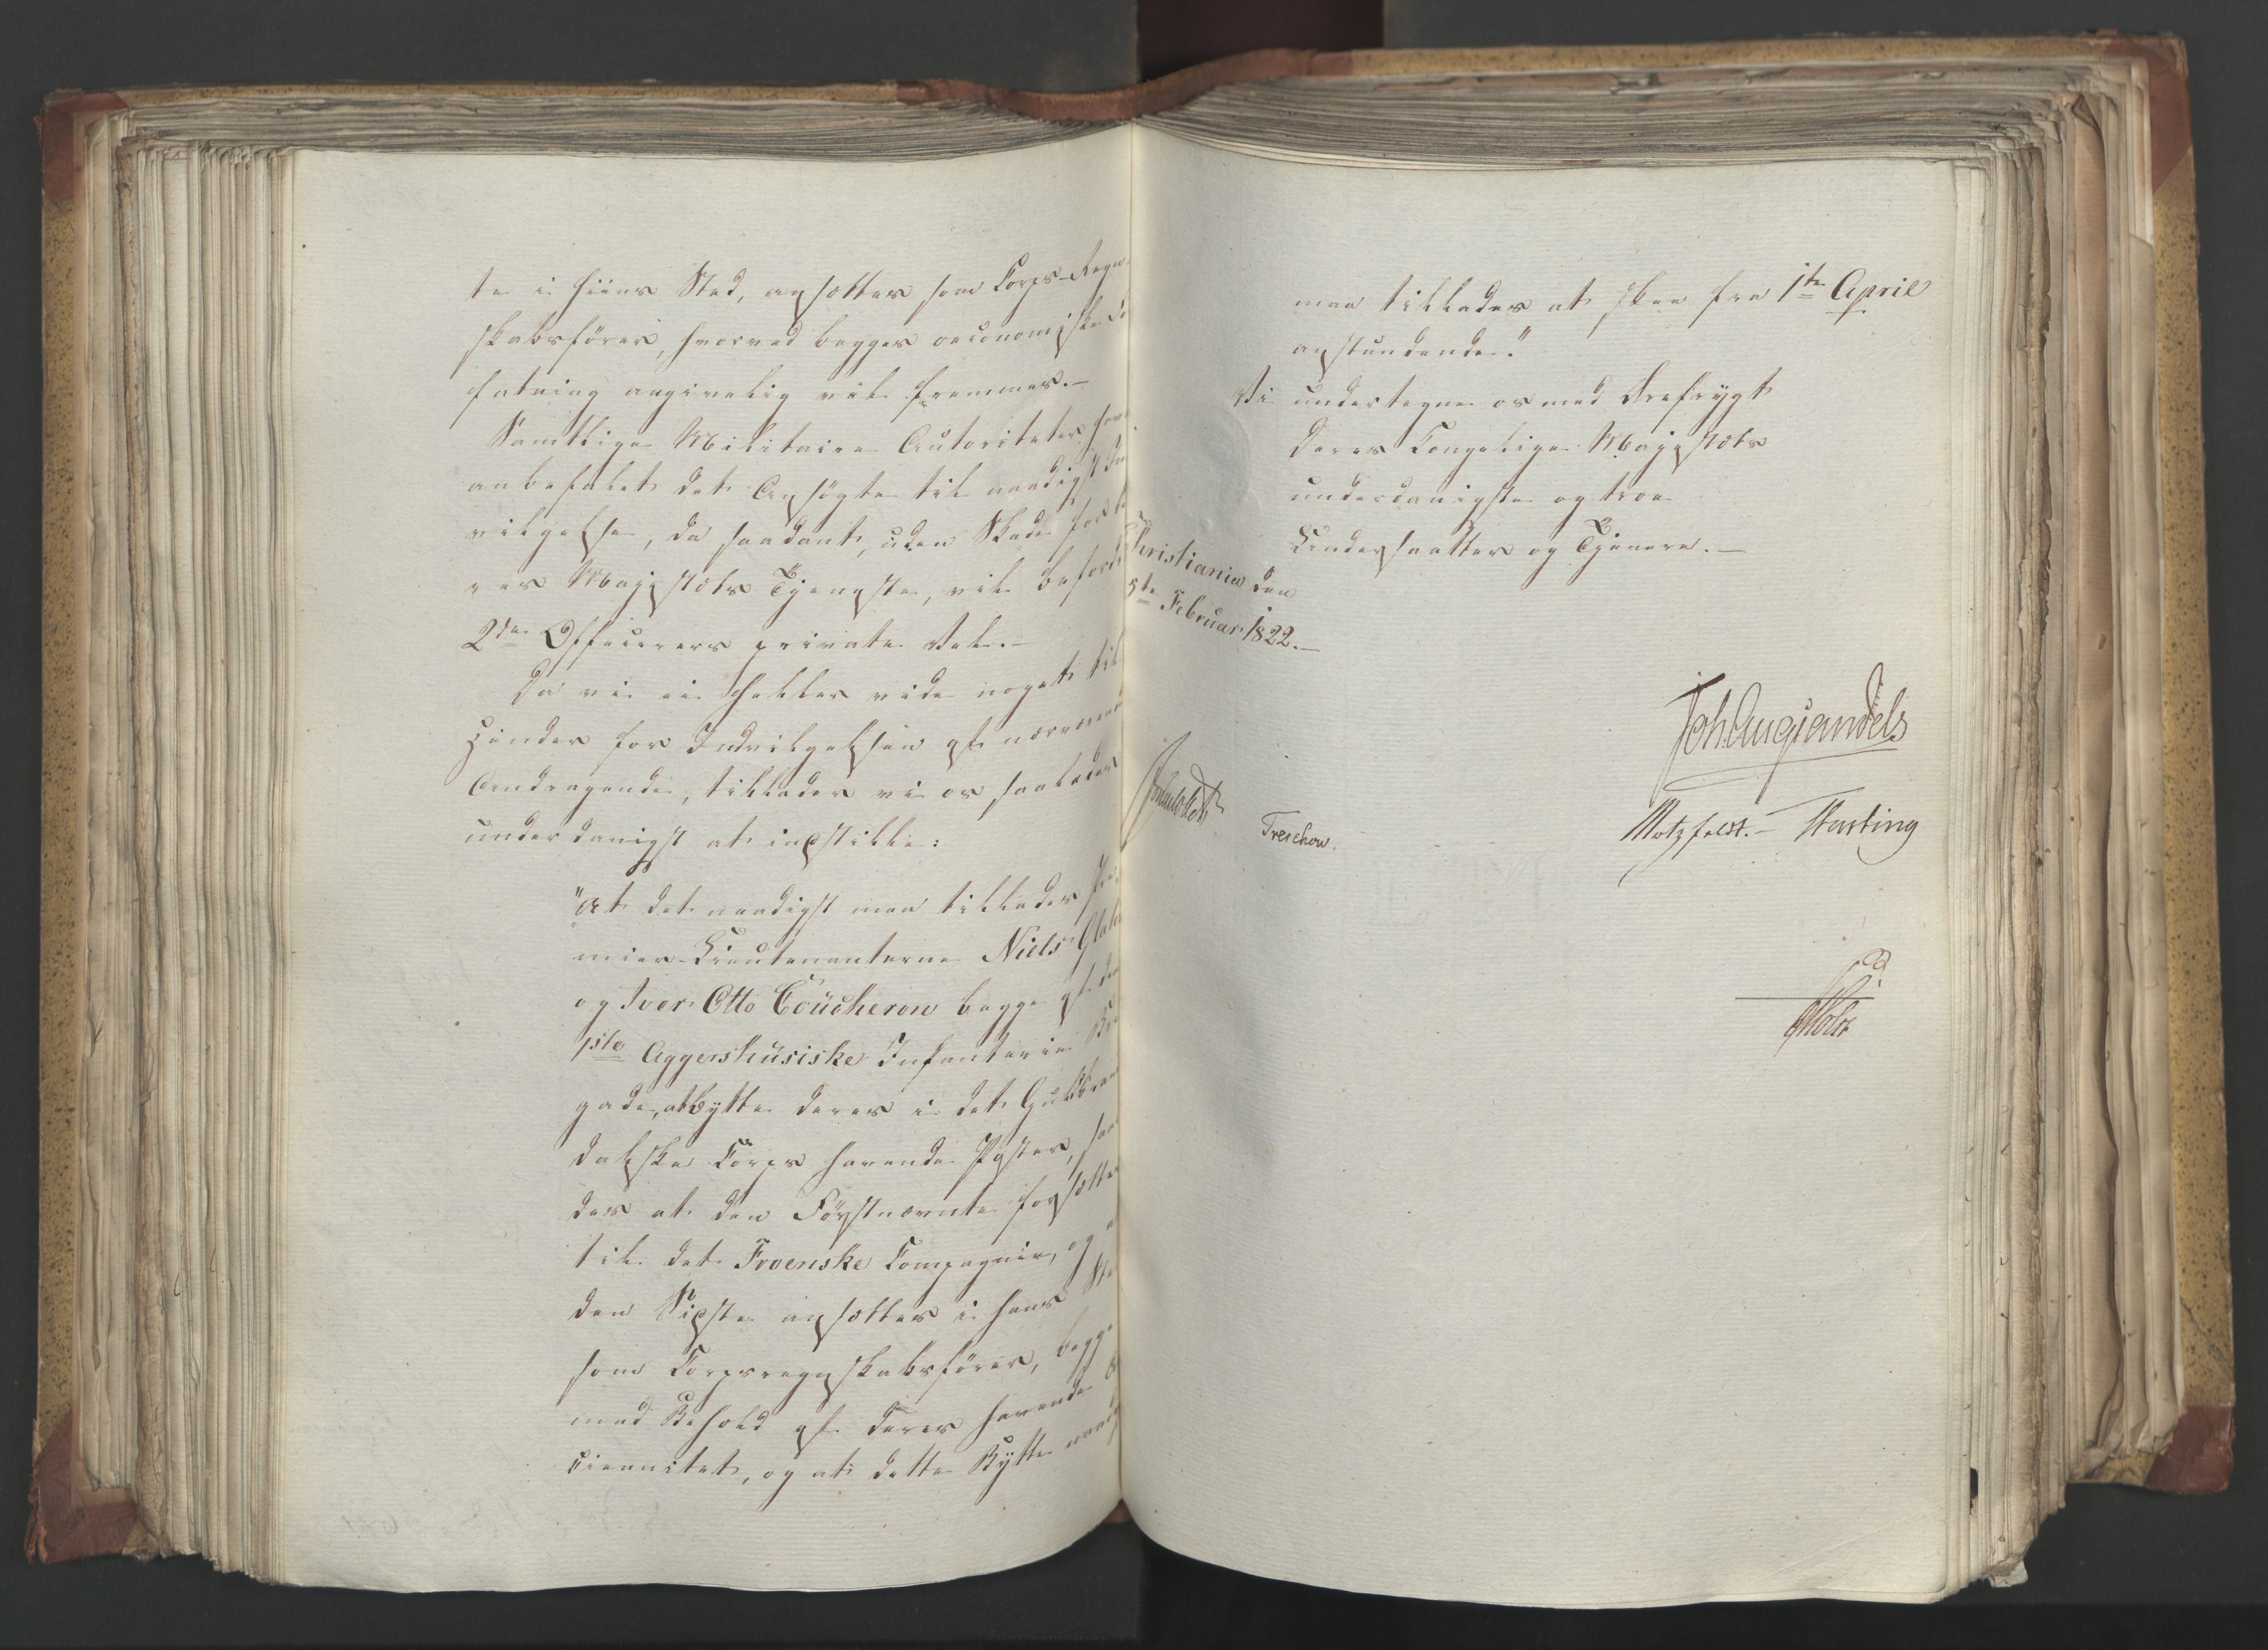 te i hiins Sted, ansættes som Corps-Regn-
skabsfører, hvorved begges oeconomiske
fatning angivelig vil fremmes.—
Samtlige Militaire Autoriteter have
anbefalet det Ansøgte til naadigst
vilgelse, da saadant, uden Skade for
res Majestæts Tjeneste, vil befordre
2de Officerers private Vel.—
Da vi ei heller vide noget til
Hinder for Indvilgelsen af nærværende
Andragende, tillader vi os saaledes
underdanigst at indstille:
"At det naadigst maa tillades Pre-
mier-Lieutenanterne Niels
og Iver Otto Coücheron begge af den
1ste Aggershüsiske Infanterie Bri
gade, at bytte deres i det Guldbran
dalske Corps havende Poster, saa
des at den Førstnævnte forsættes
til det Froenske Compagnie, og
den Sidste ansættes i hans Sted
som Corpsregnskabsfører, begge
med Behold af deres havende
ciennitet, og at dette Bytte naadigst
maa tillades at skee fra 1ste April
anstundende."
Vi undertegne os med Ærefrygt
Deres Kongelige Majestæts
underdanigste og troe
Undersaatter og Tjenere.—
Christiania den
5te Februar 1822.—
Joh Aug Sandels
Motzfeldt.— Hasting
Treschow.
Holst